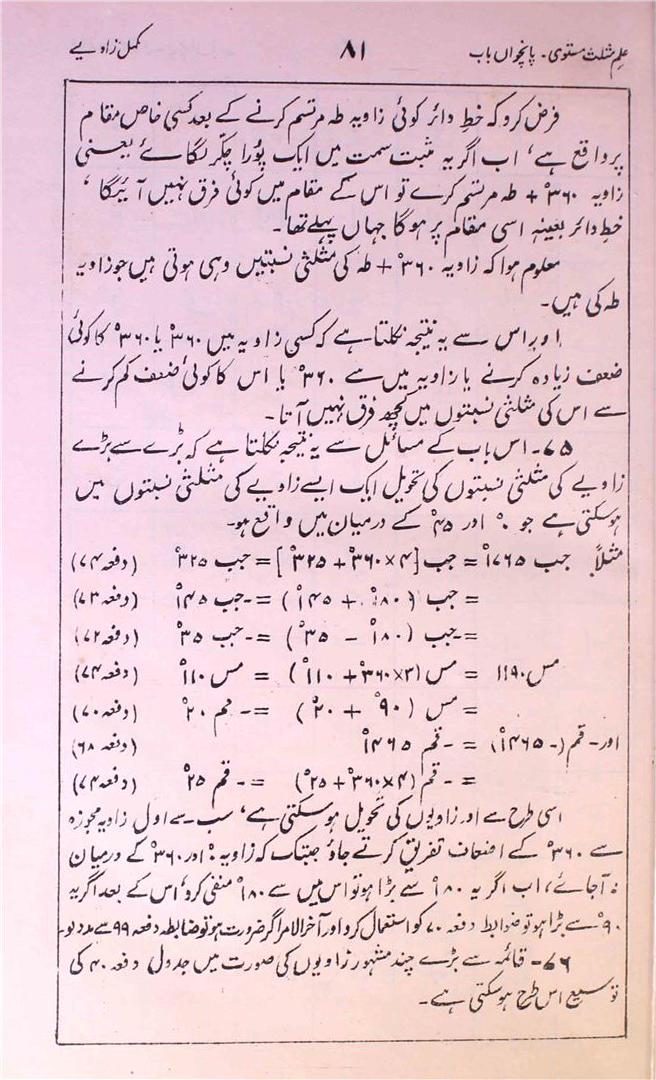 علم مثلث مستوی۔ پانچواں باب ۸۱ مکمل زاویے
فرض کرو کہ خطِ دائر کوئی زاویہ طہ مرتسم کرنے کے بعد کسی خاص مقام
پر واقع ہے، اب اگر یہ مثبت سمت میں ایک پورا چکر لگائے یعنی
زاویہ ۳۶۰° + طہ مرتسم کرے تو اس کے مقام میں کوئی فرق نہیں آئیگا،
خطِ دائر بعینہٖ اسی مقام پر ہوگا جہاں پہلے تھا۔
معلوم ہوا کہ زاویہ ۳۶۰° + طہ کی مثلثی نسبتیں وہی ہوتی ہیں جو زاویہ
طہ کی ہیں۔
اور اس سے یہ نتیجہ نکلتا ہے کہ کسی زاویہ میں ۳۶۰° یا ۳۶۰° کا کوئی
ضعف زیادہ کرنے یا زاویہ میں سے ۳۶۰° یا اس کا کوئی ضعف کم کرنے
سے اس کی مثلثی نسبتوں میں کچھ فرق نہیں آتا۔
۷۵۔ اس باب کے مسائل سے یہ نتیجہ نکلتا ہے کہ بڑے سے بڑے
زاویے کی مثلثی نسبتوں کی تحویل ایک ایسے زاویے کی مثلثی نسبتوں میں
ہوسکتی ہے جو ۰° اور ۴۵° کے درمیان میں واقع ہو۔
مثلاً جب ۱۷۶۵° = جب [۴×۳۶۰° + ۳۲۵°] = جب ۳۲۵° (دفعہ ۷۴)
= جب (۱۸۰° + ۱۴۵°) = - جب ۱۴۵° (دفعہ ۷۳)
= - جب (۱۸۰° - ۳۵°) = - جب ۳۵° (دفعہ ۷۲)
مس ۱۱۹۰ = مس (۳×۳۶۰° + ۱۱۰°) = مس ۱۱۰° (دفعہ ۷۴)
= مس (۹۰° + ۲۰°) = - قم ۲۰° (دفعہ ۷۰)
اور - قم (- ۱۴۶۵°) = - قم ۱۴۶۵° (دفعہ ۶۸)
= - قم (۴×۳۶۰° + ۲۵°) = - قم ۲۵° (دفعہ ۷۴)
اسی طرح سے اور زاویوں کی تحویل ہوسکتی ہے، سب سے اول زاویہ مجوزہ
سے ۳۶۰° کے اضعاف تفریق کرتے جاؤ جبتک کہ زاویہ ۰° اور ۳۶۰° کے درمیان
نہ آجائے، اب اگر یہ ۱۸۰° سے بڑا ہو تو اس میں سے ۱۸۰° منفی کرو، اس کے بعد اگر یہ
۹۰° سے بڑا ہو تو ضابطہ دفعہ ۷۰ کو استعمال کرو اور آخر الامر اگر ضرورت ہو تو ضابطہ دفعہ ۹۹ سے مدد لو۔
۷۶۔ قائمہ سے بڑے چند مشہور زاویوں کی صورت میں جدول دفعہ ۴۰ کی
توسیع اس طرح ہوسکتی ہے۔